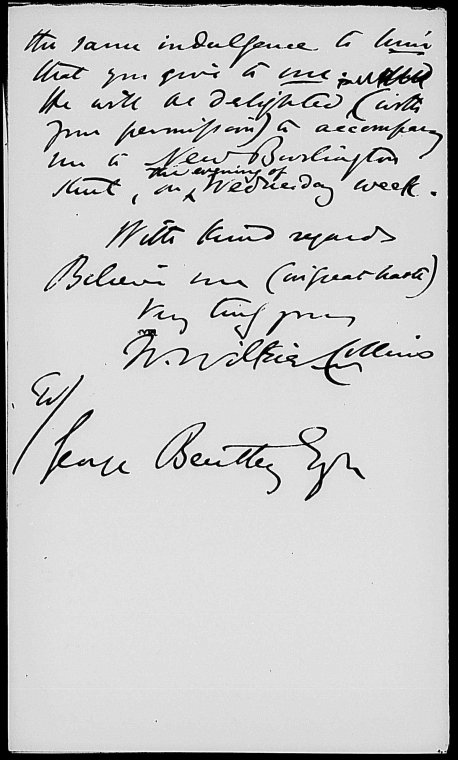 the same indulgence to him
that you give to me.
He will be delighted (with
your permission) to accompany
me to New Burlington
Street, on the evening of Wednesday week.
With kind regards
Believe me (in great haste)
Very truly yours
W. Wilkie Collins
To/
George Bentley Esqre